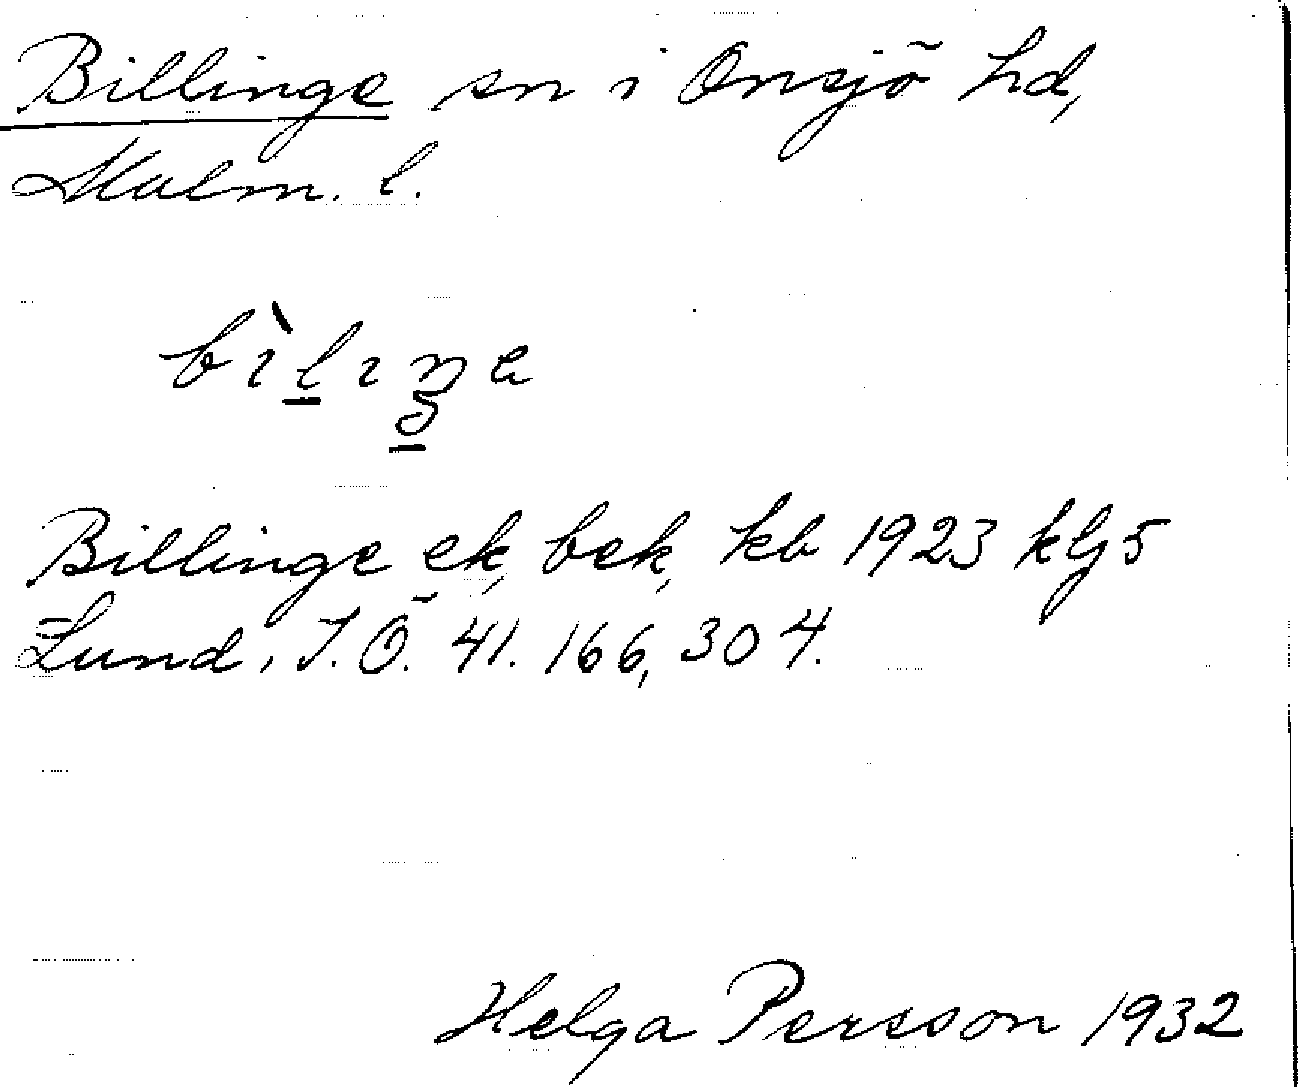 Billinge sn i Onsjö hd,
Malm. l.
bìlıŋe
Billinge ek, bek, kb 1923 klj 5
Lund, J.Ö. 41. 166, 304.
Helga Persson 1932